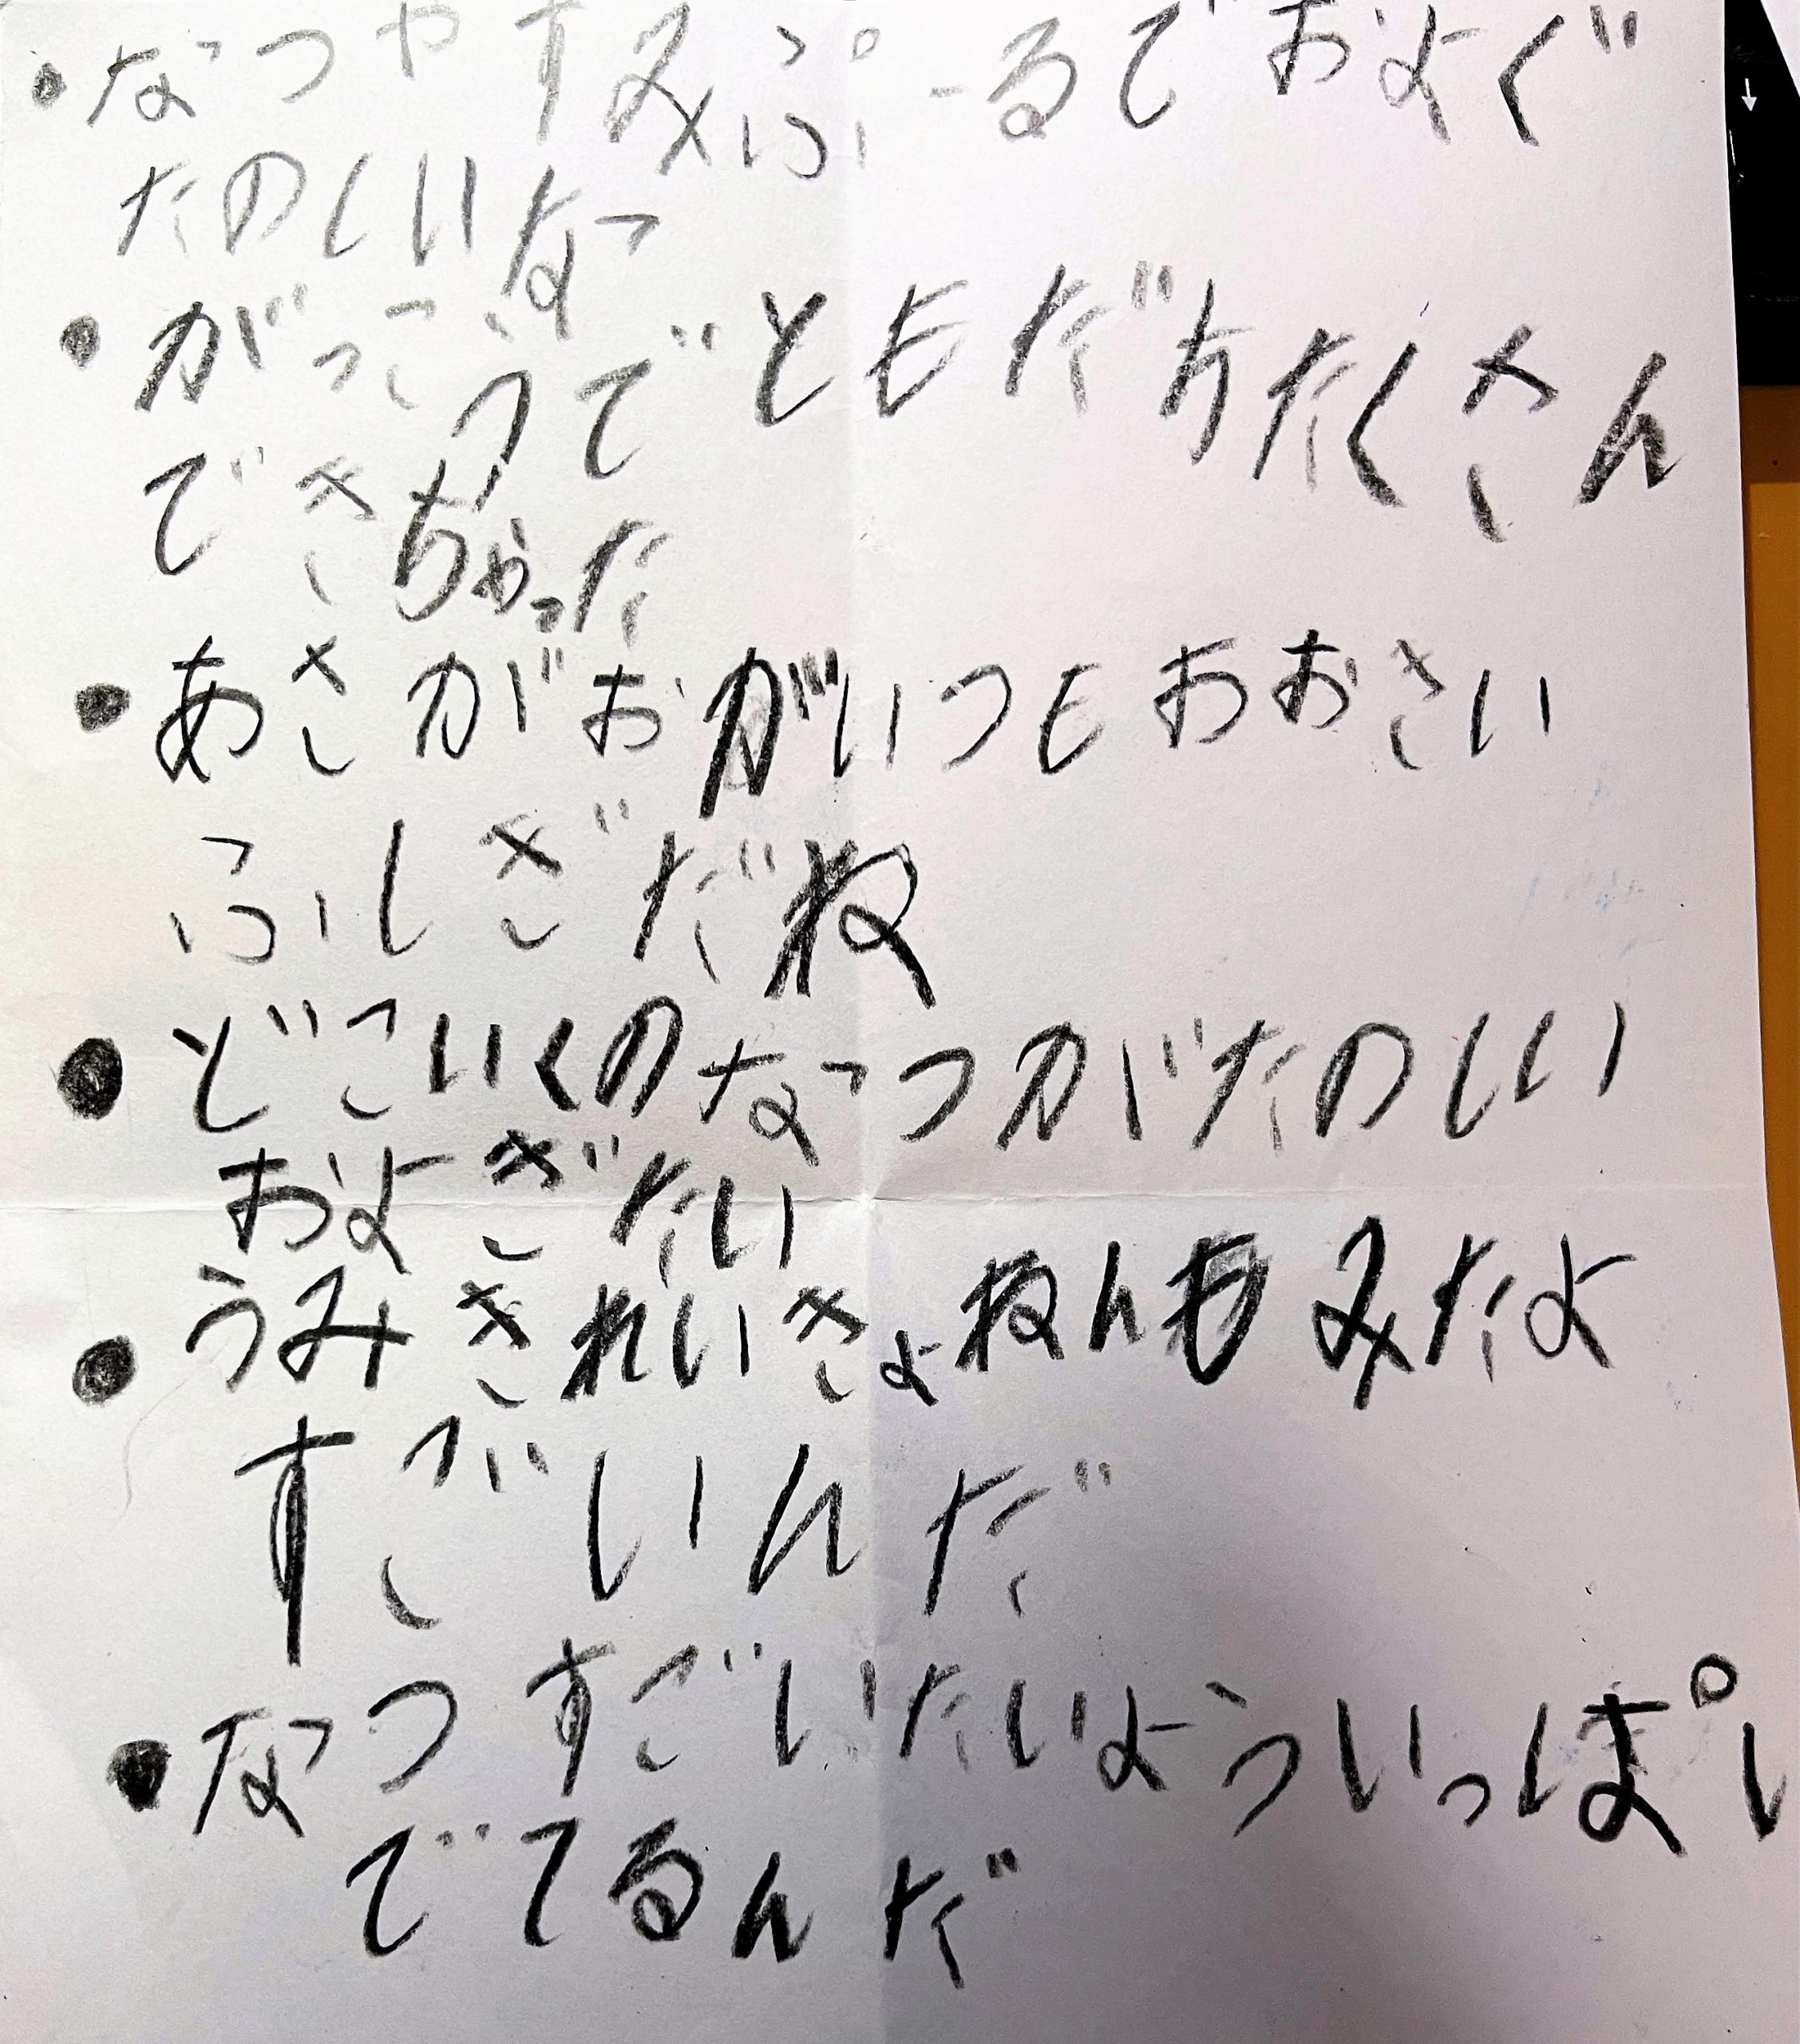 ・なつやすみぷーるでおよぐ
たのしいなつ
・がっこうでともだちたくさん
できちゃった
・あさがおがいつもおおきい
ふしぎだね
・どこいくのなつがたのしい
およぎたい
・うみきれいきょねんもみたよ
すごいんだ
・なつすごいたいよういっぱい
でてるんだ